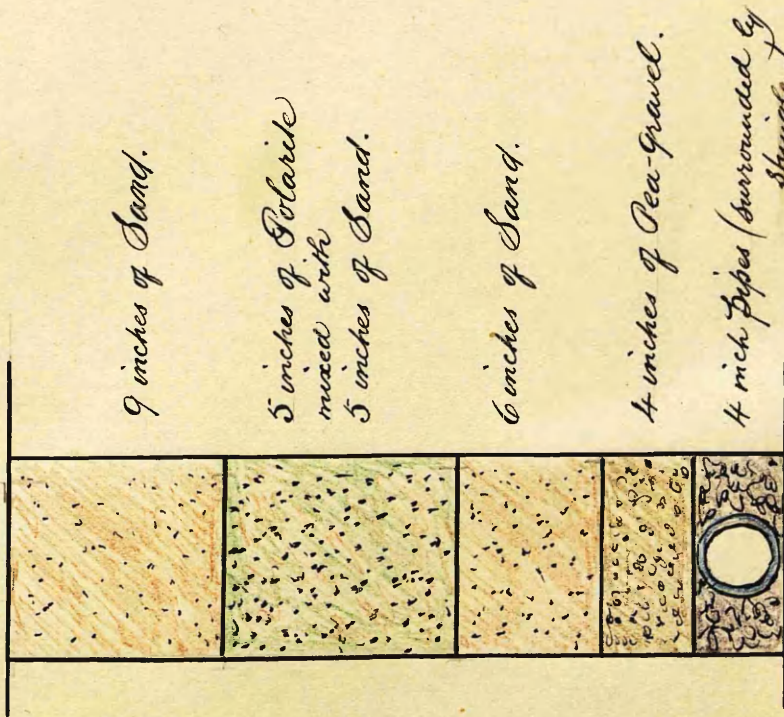 9 inches of Sand.
5 inches of Polarite
mixed with
5 inches of Sand.
6 inches of Sand.
4 inches of Pea-Gravel.
4 inch Pipes (surrounded by
Shingle +